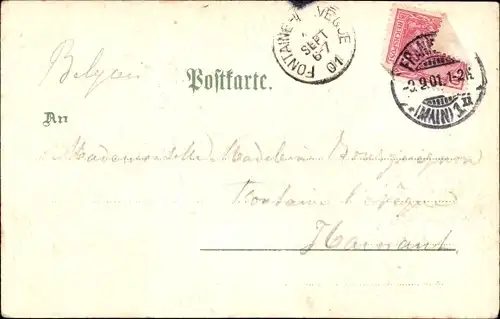 FONTAINE-L'ÉVÊQUE
SEPT
6-7
01
FRANKFURT
-3.9.01.1-2N
(MAIN)1
Belgien
Postkarte.
An
Mademoiselle Madeleine
Fontaine l'évêque
Hainaut